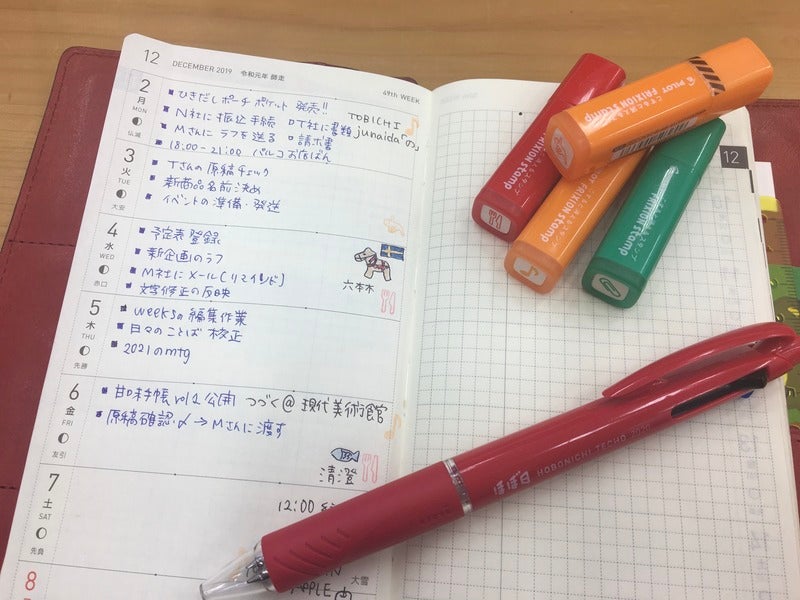 12 DECEMBER 2019 令和元年 師走 49th WEEK
2 月 MON 仏滅
ひきだしポーチ ポケット 発売!!
N社に振込手続 ロT社に書類
Mさんに ラフを送る ロ請求書
18:00-21:00 パルコお店ばん
TOBICHI
junaida「の」
3 火 TUE 大安
Tさんの原稿チェック
新商品名前決め
イベントの準備・発送
4 水 WED 赤口
予定表登録
新企画のラフ
M社にメール(リマインド)
文字修正の反映
六本木
5 木 THU 先勝
weeksの編集作業
日々のことば 校正
2021のmtg
6 金 FRI 友引
甘口手帳 vol.1 公開 つづく@現代美術館
原稿確認・〆→Mさんに渡す
清澄
7 土 SAT 先負
12:00
8
APPLE
大雪
12
PILOT FRIXION stamp
FRIXION stamp
FRIXION stamp
FRIXION stamp
ほぼ日 HOBONICHI TECHO 2020